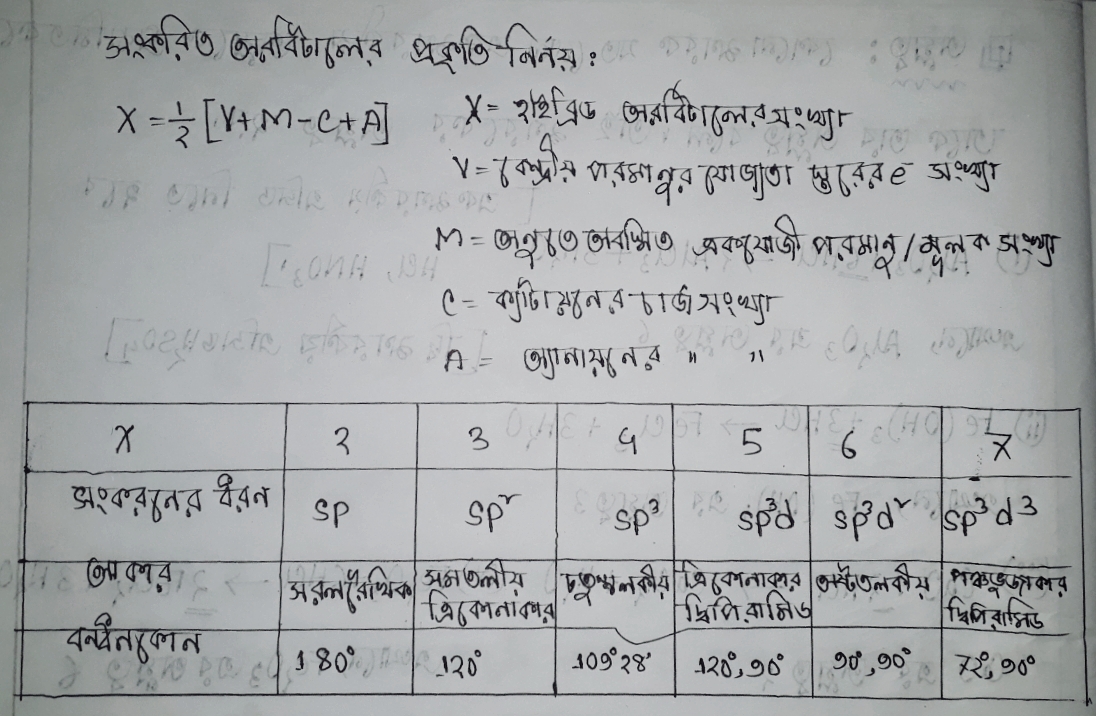 সংকরিত অরবিটালের প্রকৃতি নির্নয়:
X = 1/2 [V+M-C+A]
X = হাইব্রিড অরবিটালের সংখ্যা
V = কেন্দ্রীয় পরমানুর যোজ্যতা স্তরের e⁻ সংখ্যা
M = অনুতে অবস্থিত একযোজী পরমানু/মূলক সংখ্যা
C = ক্যাটায়নের চার্জ সংখ্যা
A = অ্যানায়নের " "
X 2 3 4 5 6 7
সংকরনের ধরন sp sp² sp³ sp³d sp³d² sp³d³
আকার সরলরৈখিক সমতলীয় ত্রিকোনাকার চতুস্থলকীয় ত্রিকোনাকার দ্বিপিরামিড অষ্টতলকীয় পঞ্চভুজাকার দ্বিপিরামিড
বন্ধনকোন 180° 120° 109°28' 120°,90° 90°,90° 72°,90°